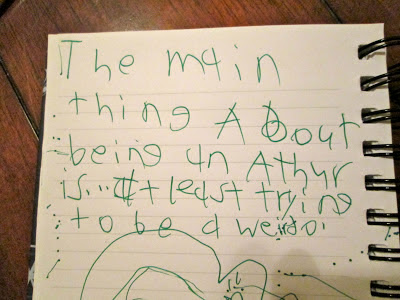 The main
thing About
being an Athur
is... At least trying
to be a weirdo.